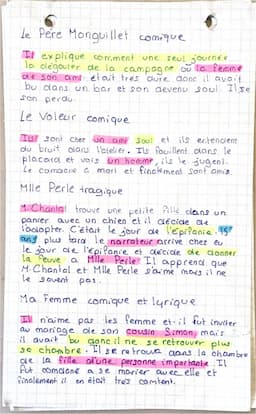 Le Père Monguillet comique
Il explique comment une seul journée
la dégouter de la campagne où la femme
de son ami était très dure donc il avait
bu dans un bar et son devenu soul. Il se
son perdu.
Le Voleur comique
Ils sont chez un ami soul et ils entendent
du bruit dans l'atelier. Ils fouillent dans le
placard et vois un homme, ils le jugent.
Le condane a mort et finalement sont amis.
Mlle Perle tragique
M. Chantal trouve une petite fille dans un
panier avec un chien et il décide de
l'adopter. C'était le jour de l'épifanie. 15
ans plus tard le narrateur arrive chez eu
le jour de l'épifanie et décide de donner
la feuve a Mlle Perle Il apprend que
M. Chantal et Mlle Perle s'aime mais il ne
le savent pas.
Ma Femme comique et lyrique
Il n'aime pas les femme et il fut inviter
au mariage de son cousin Simon, mais
il avait bu donc il ne se retrouver plus
se chambre. Il se retrouva dans la chambre
de la fille d'une personne importante Il
fut condané a se marier avec elle et
finalement il en était très content.